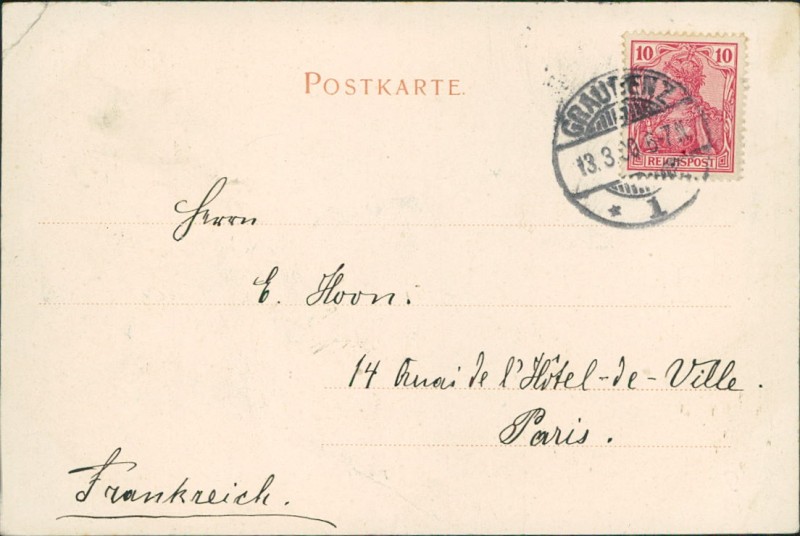 POSTKARTE.
10 10
REICHSPOST
GRAUDENZ
13.3.00 6-7N.
* 1
Herrn
E. Hoon.
14 Quai de l'Hôtel-de-Ville.
Paris.
Frankreich.